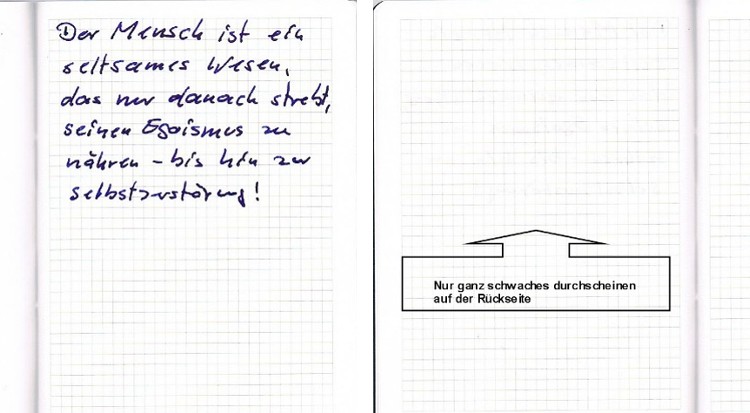 Der Mensch ist ein
seltsames Wesen,
das nur danach strebt,
seinen Egoismus zu
nähren - bis hin zur
selbstzerstörung!
Nur ganz schwaches durchscheinen
auf der Rückseite